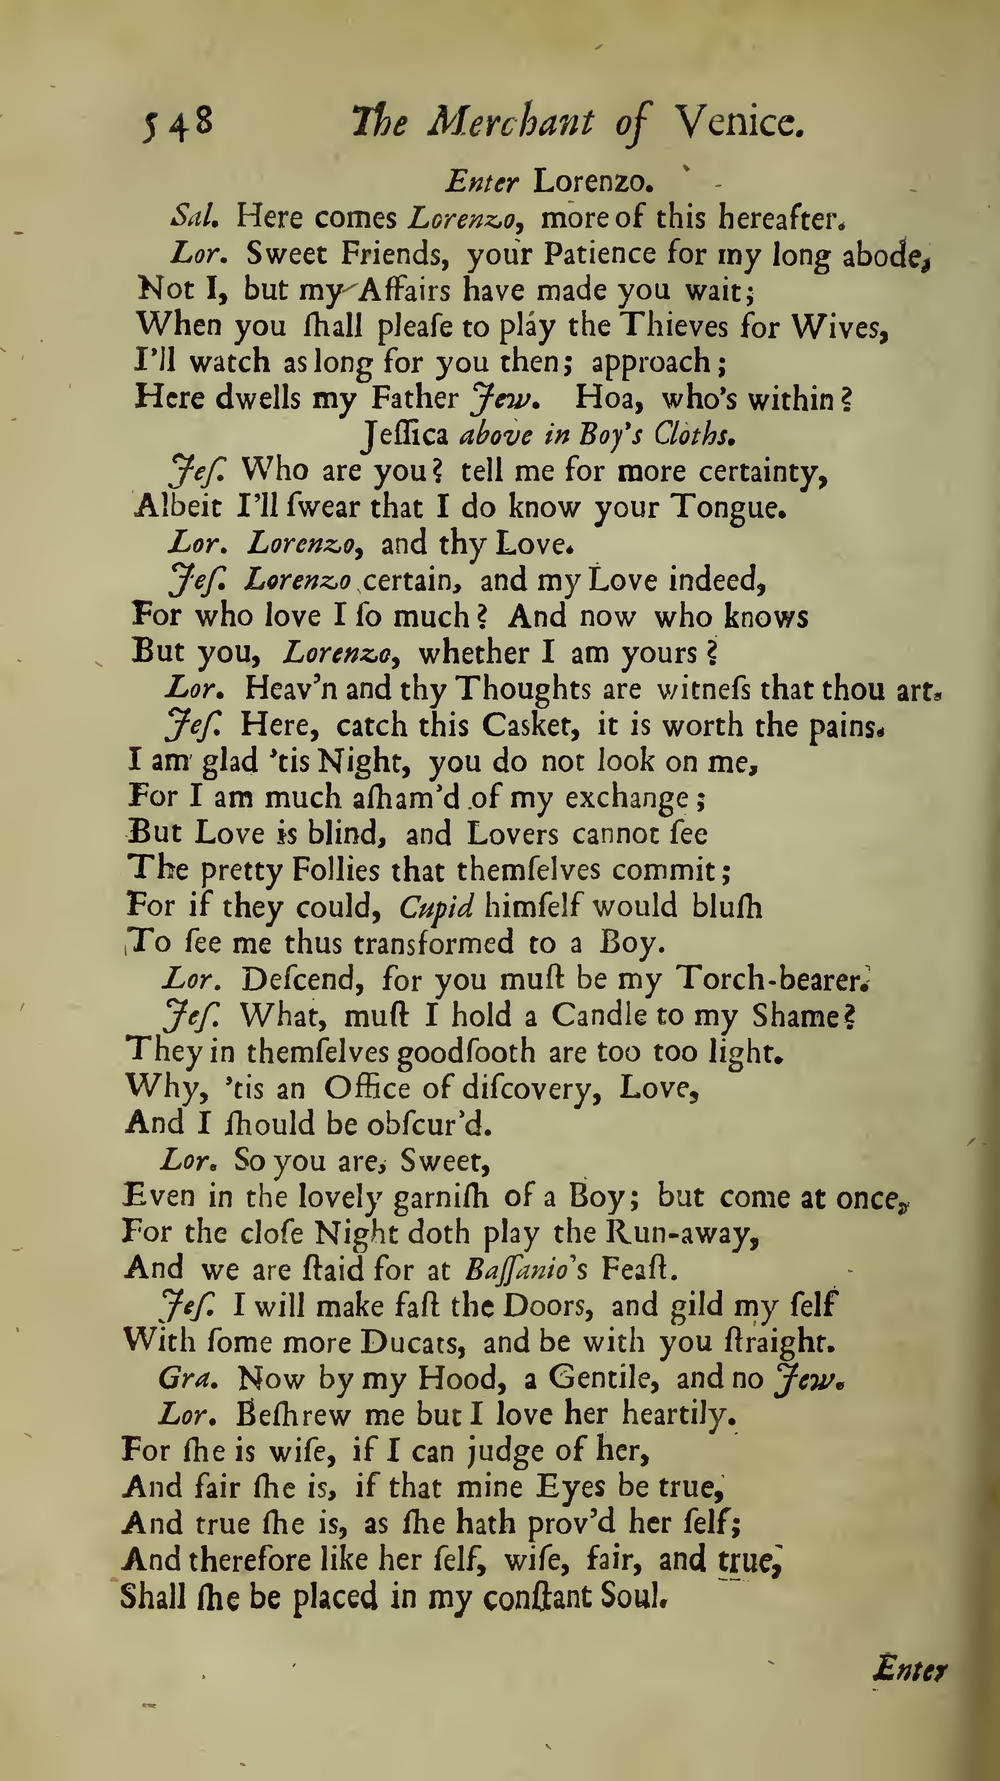 548 The Merchant of Venice.
Enter Lorenzo.
Sal. Here comes Lorenzo, more of this hereafter.
Lor. Sweet Friends, your Patience for my long abode,
Not I, but my Affairs have made you wait;
When you ſhall pleaſe to play the Thieves for Wives,
I'll watch as long for you then; approach;
Here dwells my Father Jew. Hoa, who's within?
Jeſſica above in Boy's Cloths.
Jeſ. Who are you? tell me for more certainty,
Albeit I'll ſwear that I do know your Tongue.
Lor. Lorenzo, and thy Love.
Jeſ. Lorenzo certain, and my Love indeed,
For who love I ſo much? And now who knows
But you, Lorenzo, whether I am yours?
Lor. Heav'n and thy Thoughts are witneſs that thou art.
Jeſ. Here, catch this Casket, it is worth the pains.
I am glad 'tis Night, you do not look on me,
For I am much aſham'd of my exchange;
But Love is blind, and Lovers cannot ſee
The pretty Follies that themſelves commit;
For if they could, Cupid himſelf would bluſh
To ſee me thus transformed to a Boy.
Lor. Deſcend, for you muſt be my Torch-bearer.
Jeſ. What, muſt I hold a Candle to my Shame?
They in themſelves goodſooth are too too light.
Why, 'tis an Office of diſcovery, Love,
And I ſhould be obſcur'd.
Lor. So you are, Sweet,
Even in the lovely garniſh of a Boy; but come at once,
For the cloſe Night doth play the Run-away,
And we are ſtaid for at Baſſanio's Feaſt.
Jeſ. I will make faſt the Doors, and gild my ſelf
With ſome more Ducats, and be with you ſtraight.
Gra. Now by my Hood, a Gentile, and no Jew.
Lor. Beſhrew me but I love her heartily.
For ſhe is wiſe, if I can judge of her,
And fair ſhe is, if that mine Eyes be true,
And true ſhe is, as ſhe hath prov'd her ſelf;
And therefore like her ſelf, wiſe, fair, and true,
Shall ſhe be placed in my conſtant Soul.
Enter